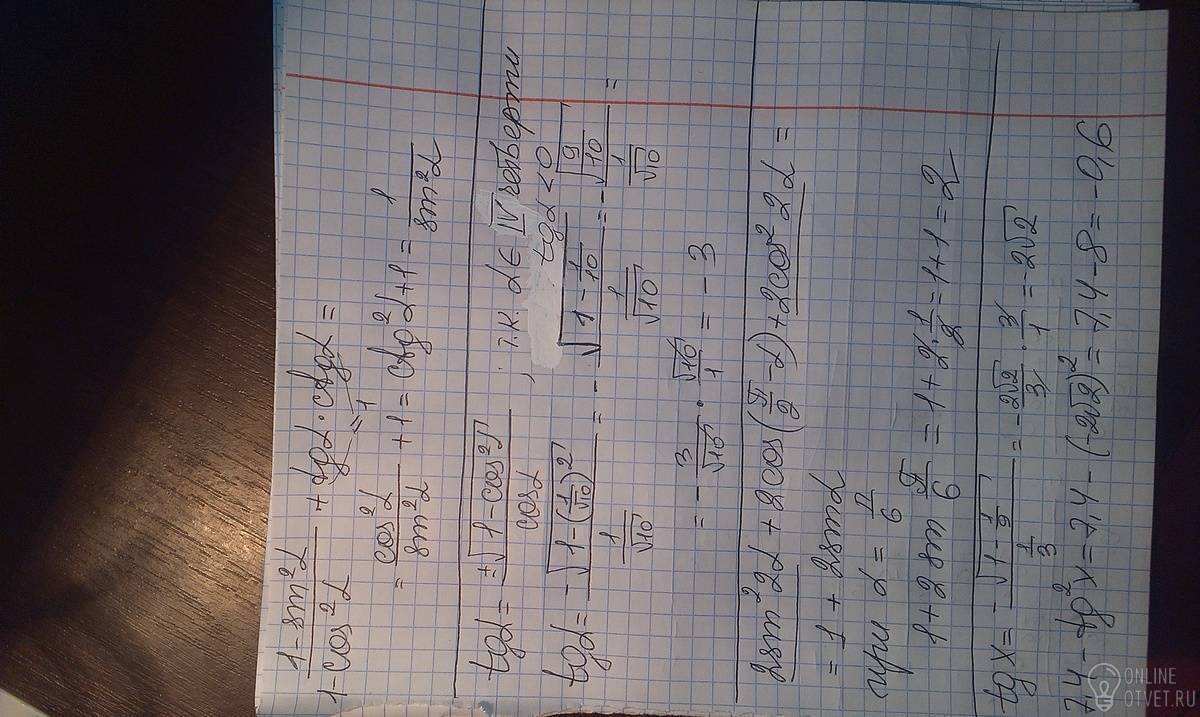 (1 - sin²α)/(1 - cos²α) + tgα · ctgα =
=1
= cos²α/sin²α + 1 = ctg²α + 1 = 1/sin²α
tgα = ±√(1 - cos²α)/cosα ; т.к. α ∈ IV четверти
tgα < 0
tgα = -√(1 - (1/√10)²)/(1/√10) = -√(1 - 1/10)/(1/√10) = -√(9/10)/(1/√10) =
= -3/√10 · √10/1 = -3
2sin²2α + 2cos(π/2 - α) + 2cos²2α =
= 1 + 2sinα
при α = π/6
1 + 2sin π/6 = 1 + 2 · 1/2 = 1 + 1 = 2
tgx = -√(1 - 1/9)/(1/3) = -2√2/3 · 3/1 = -2√2
7,4 - tg²x = 7,4 - (-2√2)² = 7,4 - 8 = -0,6
ONLINE
OTVET.RU